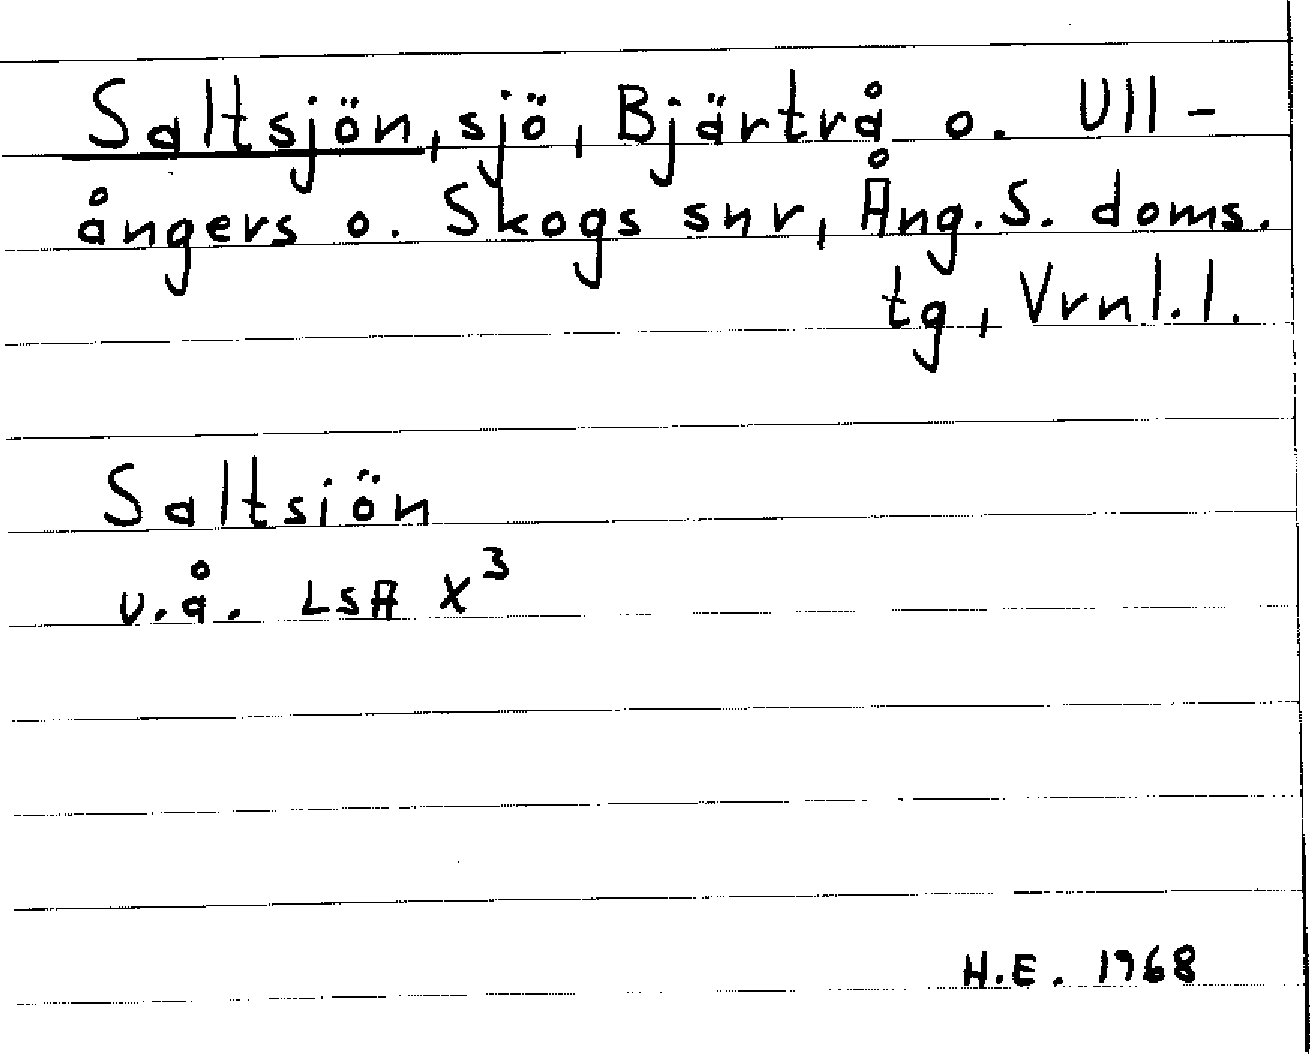 Saltsjön, sjö, Bjärtrå o. Ull-
ångers o. Skogs snr, Ång. S. doms.
tg, Vrnl. l.
Saltsiön
u.å. LSA X³
H.E. 1968